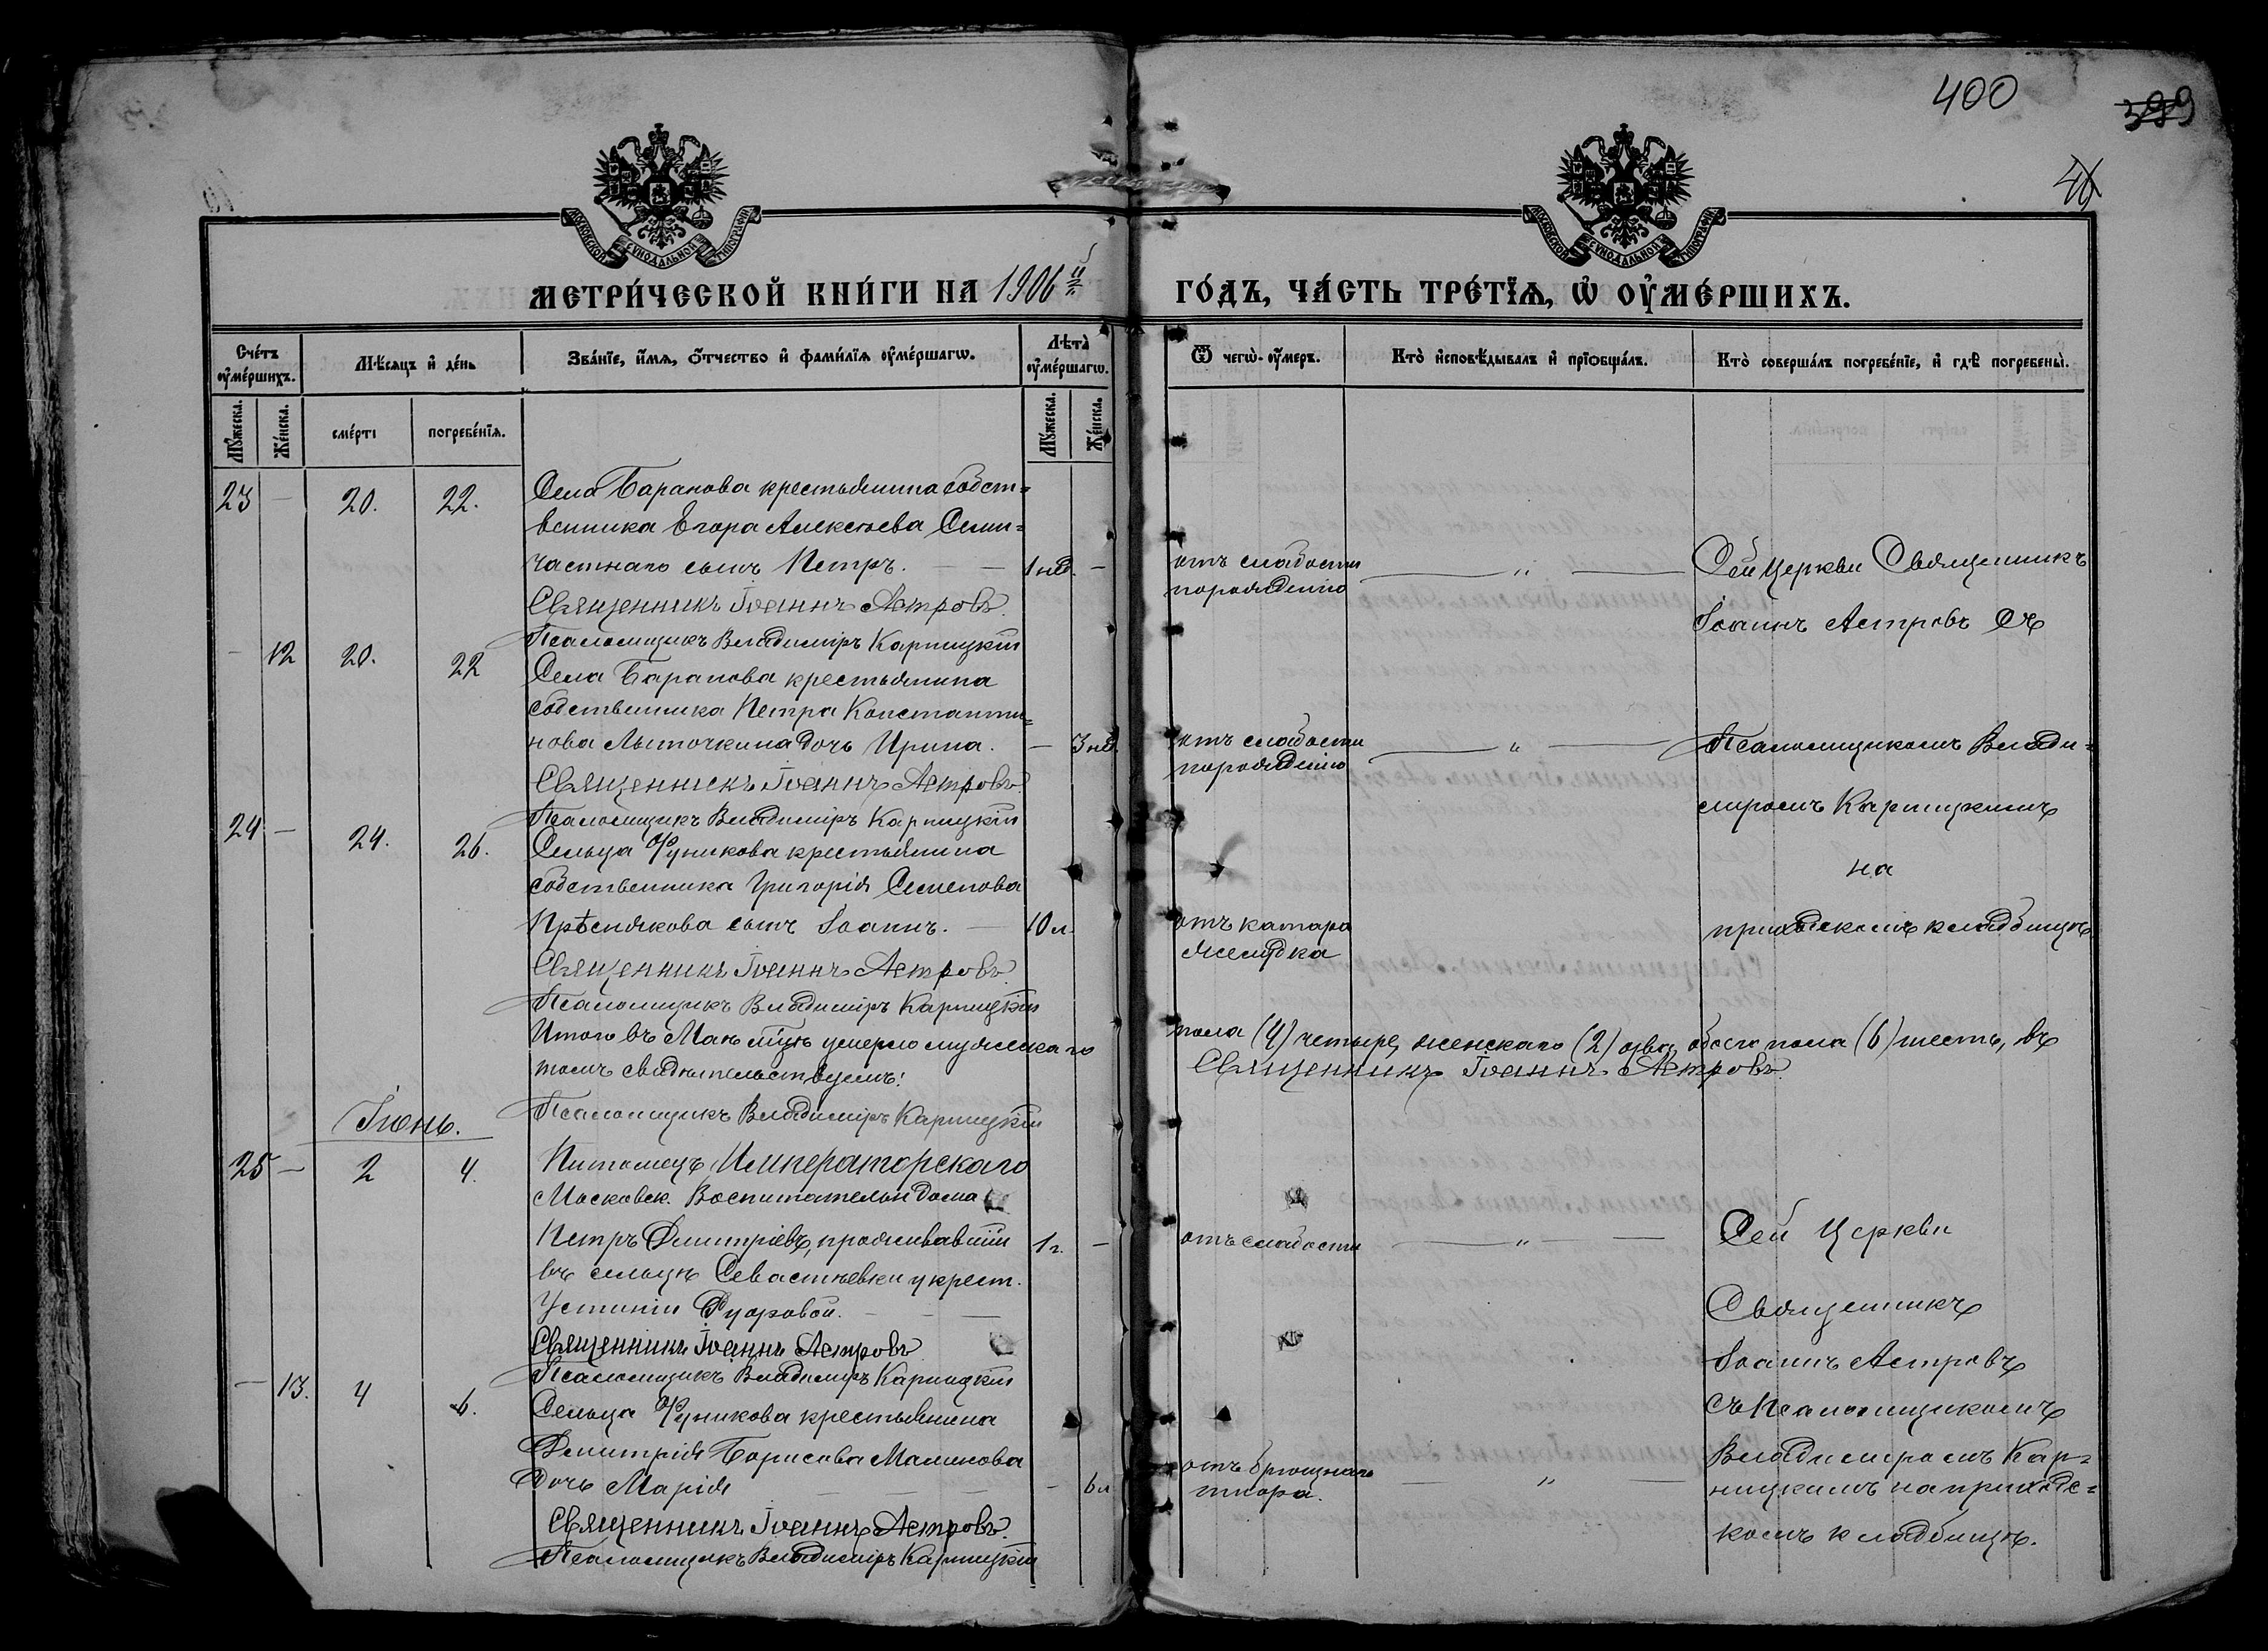 400
399
40
МОСКОВСКОЙ СУНОДАЛЬНОЙ ТИПОГРАФІИ
МОСКОВСКОЙ СУНОДАЛЬНОЙ ТИПОГРАФІИ
МЕТРИ́ЧЕСКОЙ КНИ́ГИ НА 1906й
ГО́ДЪ, ЧА́СТЬ ТРЕ́ТЇѦ, Ѽ ОУ҆МЕ́РШИХЪ.
Сче́тъ оу҆ме́ршихъ.
Мѣ́сяцъ и҆ де́нь
Зва́нїе, и҆́мѧ, ѻ҆́тчество и҆ фами́лїѧ оу҆ме́ршагѡ.
Лѣ́та̀ оу҆ме́ршагѡ.
Ѿ чегѡ̀ оу҆́меръ.
Кто̀ и҆сповѣ́дывалъ и҆ прїѻбща́лъ.
Кто̀ соверша́лъ погребе́нїе, и҆ гдѣ̀ погребены̀.
Мꙋ́жеска.
Же́нска.
сме́рти
погребе́нїѧ.
Мꙋ́жеска.
Же́нска.
23 — 20. 22. Села Баранова крестьянина собст=
венника Егора Алексѣева Семи=
частнаго сынъ Петръ. — — 1 нед. —
Священникъ Іоаннъ Астровъ.
Псаломщикъ Владиміръ Карницкій
отъ слабости
порожденію
— „ —
Сей Церкви Священникъ
Іоаннъ Астровъ съ
— 12 20. 22 Села Баранова крестьянина
собственника Петра Константи=
нова Лыточкина дочь Ирина. — 3 нед.
Священникъ Іоаннъ Астровъ.
Псаломщикъ Владиміръ Карницкій
отъ слабости
порожденію
— „ —
Псаломщикомъ Влади=
міромъ Карницкимъ
на
приходскомъ кладбищѣ
24 — 24. 26. Сельца крестьянина
собственника Григорія Семенова
Прѣснякова сынъ Іоаннъ. — 10 л.
Священникъ Іоаннъ Астровъ.
Псаломщикъ Владиміръ Карницкій
отъ катара
желудка
Итого въ Маѣ мѣсяцѣ умерло мужскаго
пола (4) четыре, женскаго (2) два, обоего пола (6) шесть, въ
томъ свидѣтельствуемъ:
Священникъ Іоаннъ Астровъ.
Псаломщикъ Владиміръ Карницкій
Іюнь.
25 — 2 4. Питомецъ Императорскаго
Московск. Воспитательн дома
Петръ Димитріевъ, проживавшій 1 г. —
въ сельцѣ Севастьевки у крест.
Устиніи — — —
Священникъ Іоаннъ Астровъ
Псаломщикъ Владиміръ Карницкій
отъ слабости
— „ —
Сей Церкви
Священникъ
Іоаннъ Астровъ
съ Псаломщикомъ
Владиміромъ Кар=
ницкимъ на приходс=
комъ кладбищѣ.
— 13. 4 6. Сельца крестьянина
Димитрія Борисова Малинова
дочь Марія — — — — 6 л
Священникъ Іоаннъ Астровъ.
Псаломщикъ Владиміръ Карницкій
отъ брюшнаго
тифа.
— „ —